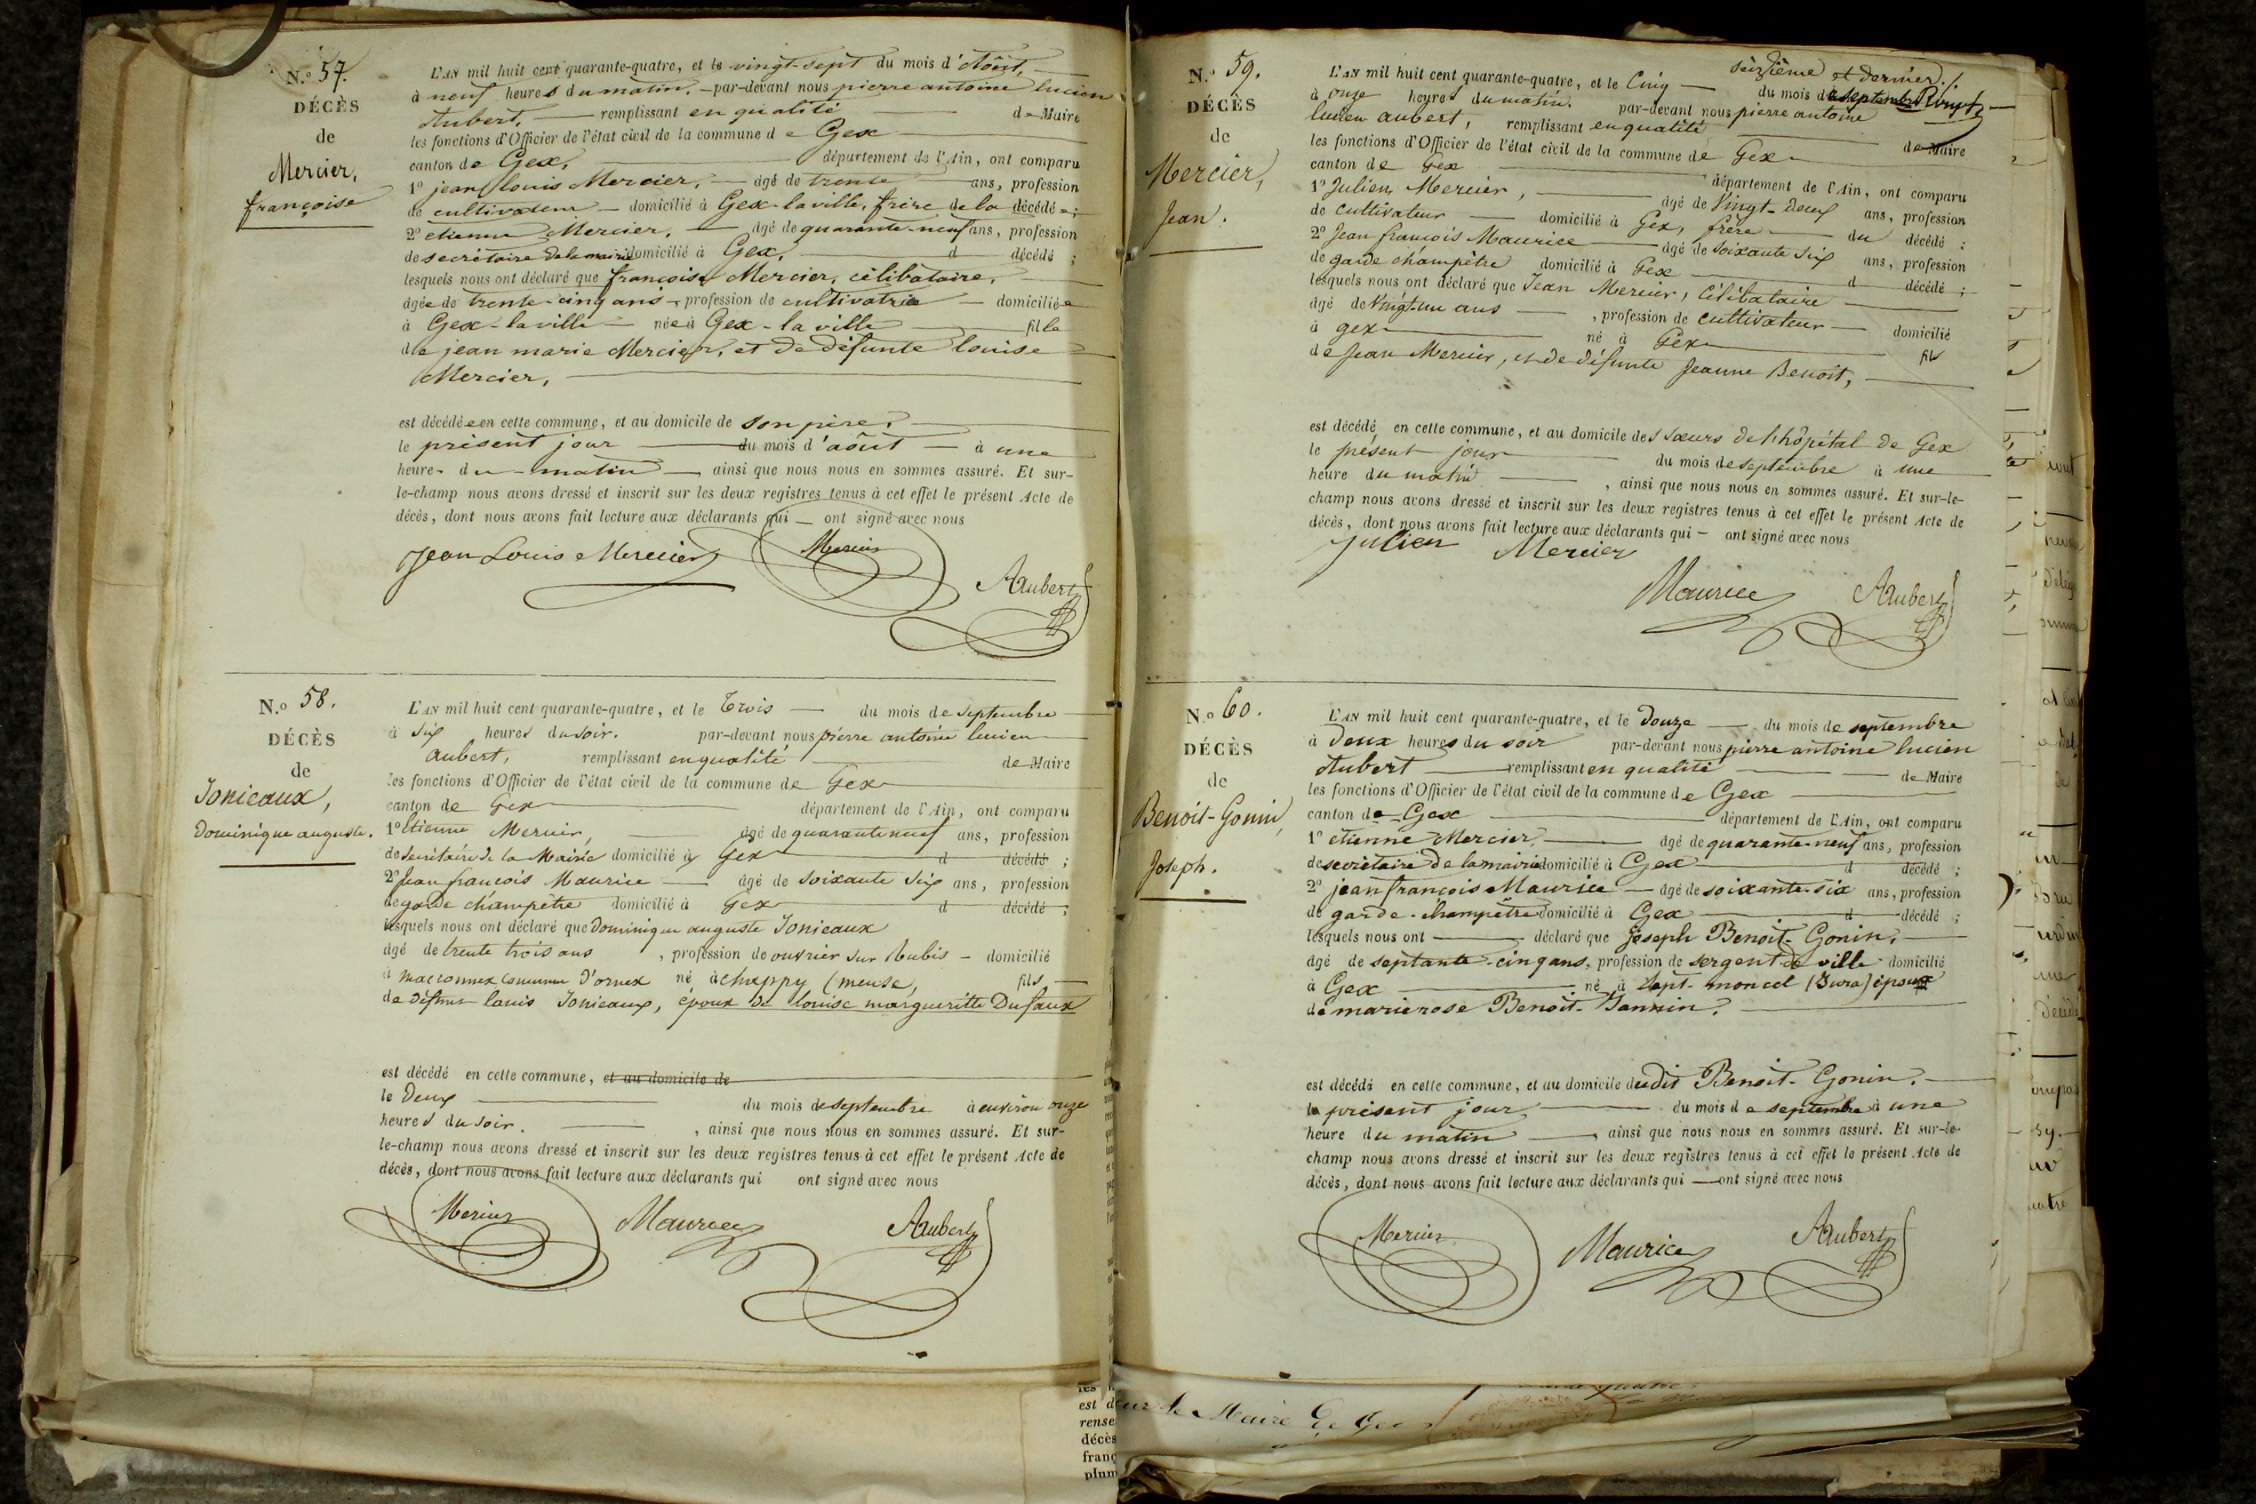 N.o 57.
DÉCÈS
de
Mercier,
françoise
L'AN mil huit cent quarante-quatre, et le vingt-sept du mois d'Août,
à neuf heures du matin. par-devant nous pierre antoine lucien
Aubert, remplissant en qualité de Maire
les fonctions d'Officier de l'état civil de la commune de Gex
canton de Gex, département de l'Ain, ont comparu
1o jean louis Mercier, âgé de trente ans, profession
de cultivateur domicilié à Gex-la ville, frère de la décédée;
2o etienne Mercier, âgé de quarante-neuf ans, profession
de secrétaire de la mairie domicilié à Gex, d décédé ;
lesquels nous ont déclaré que françoise Mercier, célibataire,
âgée de trente-cinq ans, profession de cultivatrice domiciliée
à Gex-la ville née à Gex-la ville fille
de jean marie Mercier, et de défunte louise
Mercier,
est décédée en cette commune, et au domicile de son père,
le présent jour du mois d'août à une
heure du matin ainsi que nous nous en sommes assuré. Et sur-
le-champ nous avons dressé et inscrit sur les deux registres tenus à cet effet le présent Acte de
décès, dont nous avons fait lecture aux déclarants qui ont signé avec nous
Jean Louis Mercier Mercier
Aubert
N.o 58.
DÉCÈS
de
Jonieaux,
Dominique auguste.
L'AN mil huit cent quarante-quatre, et le Trois du mois de septembre
à six heures du soir. par-devant nous pierre antoine lucien
aubert, remplissant en qualité de Maire
les fonctions d'Officier de l'état civil de la commune de Gex
canton de Gex département de l'Ain, ont comparu
1o Etienne Mercier, âgé de quarante neuf ans, profession
de secrétaire de la Mairie domicilié à Gex d décédé ;
2o Jean françois Maurice âgé de soixante six ans, profession
de garde champêtre domicilié à Gex d décédé ;
lesquels nous ont déclaré que dominique auguste Jonieaux
âgé de trente trois ans , profession de ouvrier sur Rubis domicilié
à maconnex commune d'ornex né à chappy (meuse) fils
de défunt louis Jonieaux, époux de louise marguerite Dufaux
est décédé en cette commune, et au domicile de
le Deux du mois de septembre à environ onze
heures du soir. , ainsi que nous nous en sommes assuré. Et sur-
le-champ nous avons dressé et inscrit sur les deux registres tenus à cet effet le présent Acte de
décès, dont nous avons fait lecture aux déclarants qui ont signé avec nous
Mercier Maurice Aubert
N.o 59.
DÉCÈS
de
Mercier,
Jean.
seizième et dernier.
L'AN mil huit cent quarante-quatre, et le Cinq du mois de septembre
à onze heures du matin. par-devant nous pierre antoine
lucien aubert, remplissant en qualité de Maire
les fonctions d'Officier de l'état civil de la commune de Gex
canton de Gex département de l'Ain, ont comparu
1o Julien Mercier, âgé de Vingt-deux ans, profession
de cultivateur domicilié à Gex, frère du décédé ;
2o Jean françois Maurice âgé de soixante six ans, profession
de garde champêtre domicilié à Gex d décédé ;
lesquels nous ont déclaré que Jean Mercier, célibataire
âgé de Vingt-un ans , profession de cultivateur domicilié
à gex né à Gex fils
de Jean Mercier, et de défunte Jeanne Benoit,
est décédé en cette commune, et au domicile des sœurs de l'hôpital de Gex
le présent jour du mois de septembre à une
heure du matin , ainsi que nous nous en sommes assuré. Et sur-le-
champ nous avons dressé et inscrit sur les deux registres tenus à cet effet le présent Acte de
décès, dont nous avons fait lecture aux déclarants qui ont signé avec nous
Julien Mercier
Maurice Aubert
N.o 60.
DÉCÈS
de
Benoit-Gonin,
Joseph.
L'AN mil huit cent quarante-quatre, et le Douze du mois de septembre
à Deux heures du soir par-devant nous pierre antoine lucien
Aubert remplissant en qualité de Maire
les fonctions d'Officier de l'état civil de la commune de Gex
canton de Gex département de l'Ain, ont comparu
1o etienne Mercier, âgé de quarante-neuf ans, profession
de secrétaire de la mairie domicilié à Gex d décédé ;
2o jean françois Maurice âgé de soixante-six ans, profession
de garde-champêtre domicilié à Gex d décédé ;
lesquels nous ont déclaré que joseph Benoit-Gonin,
âgé de septante-cinq ans, profession de sergent de ville domicilié
à Gex né à Sept-moncel (Jura) époux
de marie rose Benoit-Jannin,
est décédé en cette commune, et au domicile dudit Benoit-Gonin,
le présent jour, du mois de septembre à une
heure du matin , ainsi que nous nous en sommes assuré. Et sur-le-
champ nous avons dressé et inscrit sur les deux registres tenus à cet effet le présent Acte de
décès, dont nous avons fait lecture aux déclarants qui ont signé avec nous
Mercier Maurice Aubert